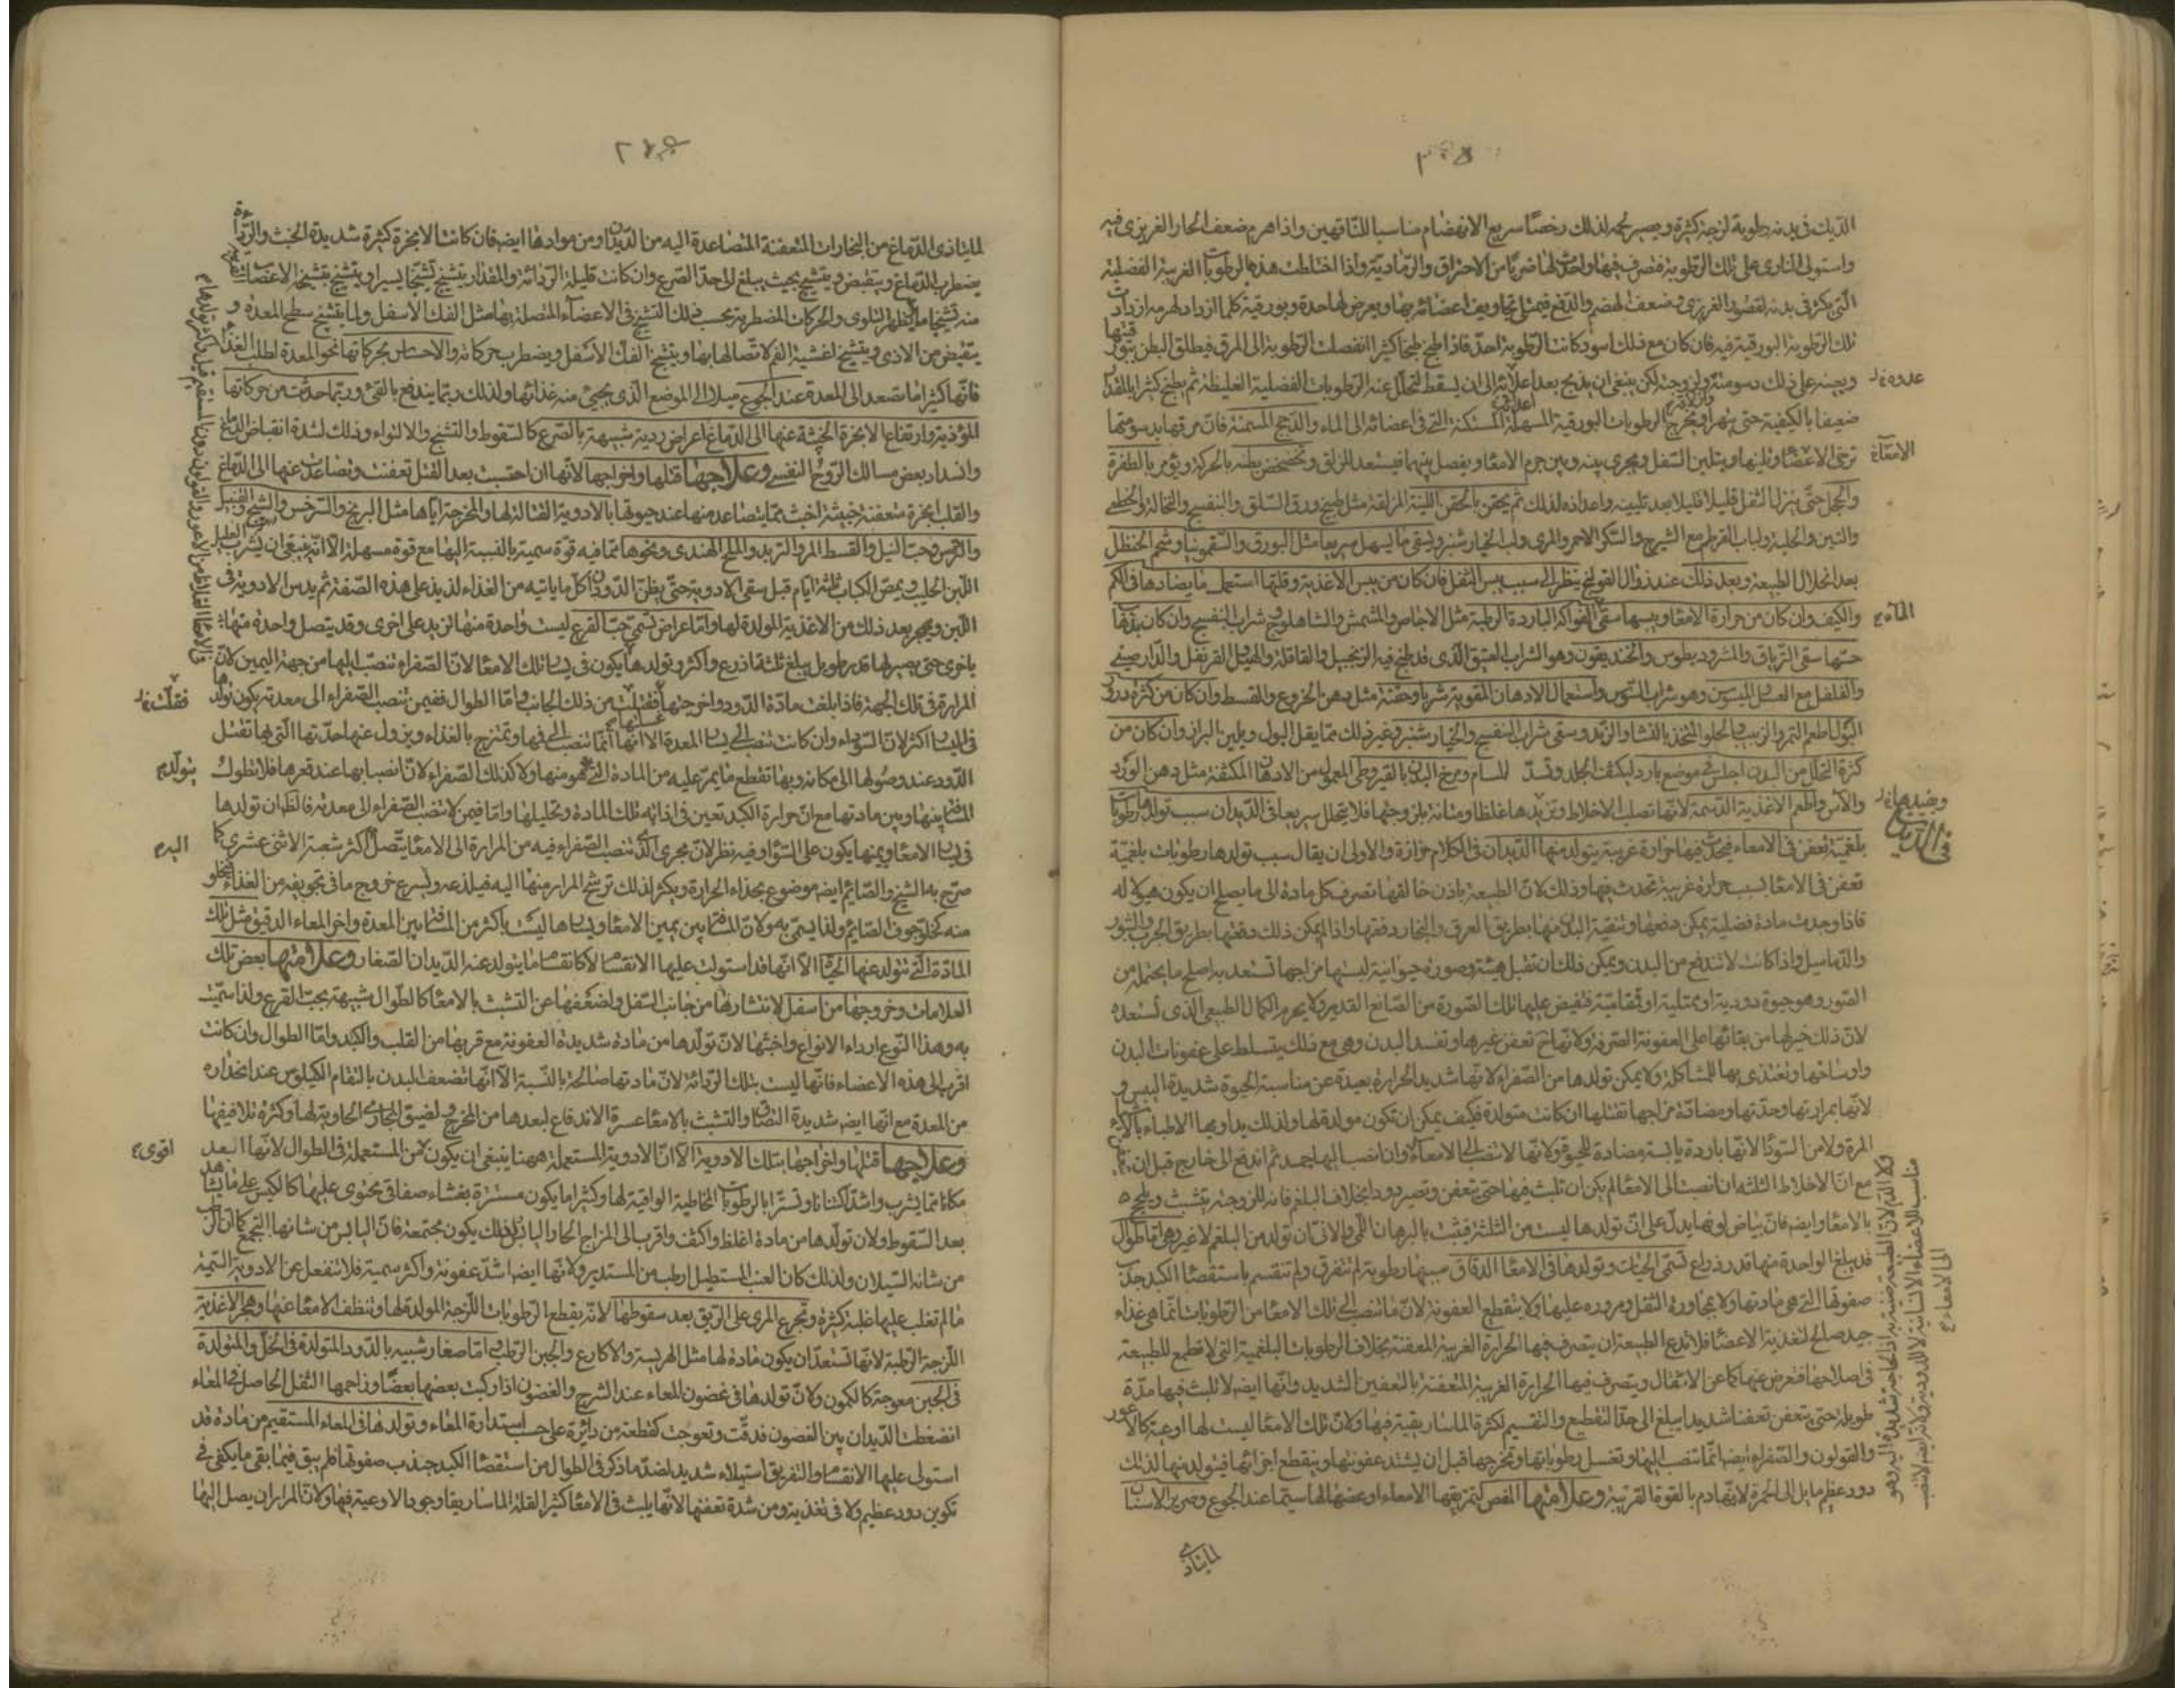 الديك فى بدنه رطوبة لزجة كثيرة ويصير لحمه لذلك رخصا سريع الانهضام مناسبا للناقهين واذا هرم ضعف الحار الغريزى فيه
واستولى النارى على تلك الرطوبة فتصرف فيها واحدث لها ضربا من الاحتراق والرمادية واذا اختلطت هذه الرطوبات الغريبة الفضلية
التى يكثر فى بدنه لقصور الغريزى وضعف الهضم والدفع فيمتلى تجاويف اعضائه بها ويعرض لها حدة وبورقية كلما ازداد هرمه ازدادت
تلك الرطوبة البورقية فيه فان كان مع ذلك اسود كانت الرطوبة احد فاذا طبخ طبخا كثيرا انفصلت الرطوبة الى المرق فيطلق البطن
ويعينه على ذلك دسومته ولزوجته لكن ينبغى ان يذبح بعد اعلائه الى ان يسقط لتحلل عنه الرطوبات الفضلية الغليظة ثم يطبخ كثيرا
ضعيفا بالكيفية حتى يتهرأ ويخرج الرطوبات البورقية المسهلة المستكنة التى فى اعضائه الى الماء والدجاج المسمنة فان مرقها بدسومتها
ترخى الاعضاء وتلينها ويتلين الثفل ويجرى بينه وبين جرم الامعاء ويفصل بينهما فيستعد للزلق وتخضخض بطنه بالحركة ويؤمر بالطفرة
والحجل حتى ينزل الثفل قليلا قليلا بعد تليينه واعداده لذلك ثم يحقن بالحقن اللينة المزلقة مثل طبيخ ورق السلق والبنفسج والنخالة والخطمى
والتين والحلبة ولباب القرطم مع الشيرج والسكر الاحمر والمرى ولب الخيار شنبر ويسقى ما يسهل سريعا مثل البورق والسقمونيا وشحم الحنظل
بعد انحلال الطبيعة وبعد ذلك عند زوال القولنج ينظر الى سبب يبس الثفل فان كان من يبس الاغذية وقلتها استعمل ما يضادها فى الكم
والكيف وان كان من حرارة الامعاء ويبسها سقى الفواكه الباردة الرطبة مثل الاجاص والمشمش والشاهلوج وشراب البنفسج وان كان
حسها سقى الترياق والمثروديطوس والخنديقون وهو الشراب العتيق الذى قد طبخ فيه الزنجبيل والقاقلة والهيل القرنفل والدارصينى
والفلفل مع العسل واستعمال الادهان المقوية شربا وحقنة مثل دهن الخروع والقسط وان كان من كثرة درور
البول اطعم التمر والزبيب والحلو المتخذ بالنشا والزبد وسقى شراب البنفسج والخيار شنبر وغير ذلك مما يقل البول ويلين البراز وان كان من
كثرة التحلل من البدن اجلس فى موضع بارد ليكثف الجلد وتسد المسام ويمرخ البدن بالقيروطى المعمول من الادهان المكثفة مثل دهن الورد
والآس واطعم الاغذية الدسمة لانها تصلب الاخلاط وتزيدها غلظا ومتانة بلزوجتها فلا يتحلل سريعا فى الديدان سبب تولدها رطوبات
بلغمية تعفن فى الامعاء فيحدث فيها حرارة غريبة يتولد منها الديدان فى الكلام حزازة والاولى ان يقال سبب تولدها رطوبات بلغمية
تعفن فى الامعاء بسبب حرارة غريبة تحدث فيها وذلك لان الطبيعة باذن خالقها تصرف كل مادة الى ما يصلح ان يكون هيولى له
فاذا وجدت مادة فضلية يمكن دفعها وتنقية البدن منها بطريق العرق والبخار دفعتها واذا لم يمكن ذلك دفعتها بطريق الجرب والبثور
والدماميل واذا كانت لا تندفع من البدن ويمكن ذلك ان تقبل هيئة وصورة حيوانية ليستها مزاجها تستعد به اصلح ما يحتمل من
الصور وهو حيوة دودية او قملية او فتفيض عليها تلك الصورة من الصانع القدير ولا يحرم الكمال الطبيعى الذى تستعده
لان ذلك خير لها من بقائها على العفونة الصرفة ولانها لم تعفن غيرها وتفسد البدن وهى مع ذلك يتسلط على عفونات البدن
واوساخها وتغتذى بها للمشاكلة ولا يمكن تولدها من الصفراء لانها شديد الحرارة بعيدة عن مناسبة الحيوة شديدة اليبس و
لانها بمرارتها وحدتها ومضادة مزاجها تقتلها ان كانت متولدة فكيف يمكن ان تكون مولدة لها ولذلك يداويها الاطباء
المرة ولا من السوداء لانها باردة يابسة مضادة للحيوة ولانها لا تنصب الى الامعاء وان انصب اليها جمد ثم اندفع الى خارج قبل ان
مع ان الاخلاط الثلثة ان انصبت الى الامعاء لم يكن ان تلبث فيها حتى تعفن وتصير دودا بخلاف البلغم فانه للزوجته يتشبث ويلحج
بالامعاء وايضا فان بياض لونها يدل على ان تولدها ليست من الثلثة فيثبت بالبرهان اللمى والانى ان تولده من البلغم لا غير وهى اما طوال
قد يبلغ الواحدة منها قدر ذراع تسمى الحيات وتولدها فى الامعاء الدقاق سببها رطوبة لم تتفرق ولم تنقسم باستقصاء الكبد جذب
صفوتها التى هى مادتها ولا بمجاورة الثفل ومروره عليها ولا بتقطع العفونة لان ما تنصب الى تلك الامعاء من الرطوبات انما هى غذاء
جيد صالح لتغذية الاعضاء فلا تدع الطبيعة ان يتصرف فيها الحرارة الغريبة المعفنة بخلاف الرطوبات البلغمية التى لا تطمع للطبيعة
فى اصلاحها فتعرض عنها كما عن الاثفال ويتصرف فيها الحرارة الغريبة المعفنة بالتعفين الشديد وانها ايضا لا تلبث فيها مدة
طويلة حتى تعفن تعفنا شديدا يبلغ الى حد التقطيع والتقسيم لكثرة الماساريقية فيها ولان تلك الامعاء ليست لها اوعية كالاعور
والقولون والصفراء ايضا انما تنصب اليها وتغسل رطوباتها وتخرجها قبل ان يشتد عفونتها ويتقطع اجزائها فيتولد منها لذلك
دود عظيم مايل الى الحمرة لانها دم بالقوة القريبة وعلامتها المغص لتمزيقها الامعاء او عضها لها سيما عند الجوع وصرير الاسنان
فى الديدان
ولا الدم لان الطبيعة ضنينة به اذ الحاجة شديدة اليه وهو
مناسب للاعضاء الانسانية لا للدودية ولانه ايضا لا تنصب
الى الامعاء
لما يتأذى
لما يتأذى الدماغ من البخارات المتعفنة المتصاعدة اليه من الديدان ومن موادها ايضا فان كانت الابخرة كثيرة شديدة الخبث والرداءة
يضطرب الدماغ ويتقبض ويتشنج بحيث يبلغ الى حد الصرع وان كانت قليلة الرداءة والمقدار يتشنج تشنجا يسيرا ويتشنج بتشنجه الاعضاء
منه تشنجا ما فيظهر التلوى والحركات المضطربة بحسب ذلك التشنج فى الاعضاء المتصلة بها مثل الفك الاسفل ولما يتشنج سطح المعدة و
يتقبض من الاذى ويتشنج اغشية الفم لاتصالها بها ويتشنج الفك الاسفل ويضطرب حركاته والاحساس بحركاتها نحو المعدة لطلب الغذاء
فانها كثيرا ما تصعد الى المعدة عند الجوع ميلا الى الموضع الذى يجيئ منه غذائها ولذلك ربما يندفع بالقئ وربما حدثت من حركاتها
المؤذية وارتفاع الابخرة الخبيثة عنها الى الدماغ اعراض ردية شبيهة بالصرع كالسقوط والتشنج والالتواء وذلك لشدة انقباض الدماغ
وانسداد بعض مسالك الروح النفسى وعلاجها قتلها واخراجها لانها ان احتبست بعد القتل تعفنت وتصاعدت عنها الى الدماغ
والقلب ابخرة متعفنة خبيثة اخبث مما يتصاعد منها عند حيوتها بالادوية القتالة لها والمخرجة اياها مثل البرنج والسرخس والشيح والقنبيل
والترمس وحب النيل والقسط المر والتربد والملح الهندى ونحوها مما فيه قوة سمية بالنسبة اليها مع قوة مسهلة الا انه ينبغى ان يشرب العليل
اللبن الحليب ويمص الكباب ثلثة ايام قبل سقى الادوية حتى يظن الدود ان كل ما ياتيه من الغذاء لذيذ على هذه الصفة ثم يدس الادوية فى
اللبن ويهجر بعد ذلك من الاغذية المولدة لها واما عراض تسمى حب القرع ليست واحدة منها تزيد على اخرى وقد يتصل واحدة منها
باخرى حتى يصير لها قدر طويل يبلغ ثلثة اذرع واكثر وتولدها يكون فى يسار تلك الامعاء لان الصفراء تنصب اليها من جهة اليمين لان
المرارة فى تلك الجهة فاذا بلغت مادة الدود واخرجتها فقتلت من ذلك الجانب واما الطوال ففيمن تنصب الصفراء الى معدته يكون تولدها
فى اليسار اكثر لان السوداء وان كانت تنصب الى يسار المعدة الا انها انما تنصب الى فمها وتمتزج بالغذاء ويزول عنها حدتها التى بها تقتل
الدود عند وصولها الى مكانه وبها تقطع ما يمر عليه من المادة التى هو منها ولا كذلك الصفراء لان انصبابها عند قعرها فلا تطول
المسافة بينها وبين مادتها مع ان حرارة الكبد تعين فى اذابة تلك المادة وتحليلها واما فيمن لا تنصب الصفراء الى معدته فالظاهر ان تولدها
فى يسار الامعاء ويمينها يكون على السواء وفيه نظر لان مجرى الذى تنصب الصفراء فيه من المرارة الى الامعاء يتصل اكثر شعبه الاثنى عشرى كما
صرح به الشيخ والصائم ايضا موضوع بحذاء الحرارة ويكثر لذلك ترشح المرار منها اليه فيلذعه ويسرع خروج ما فى تجويفه من الغذاء فيخلو
منه كخلو جوف الصائم ولذا يسمى به ولان المسافة بين يمين الامعاء ويسارها ليست باكثر من المسافة بين المعدة واخر المعاء الدقيق مثل تلك
المادة التى تتولد عنها الحيات الا انها قد استولت عليها الانقسام لا كانقسام ما يتولد عنه الديدان الصغار وعلامتها بعض تلك
العلامات وخروجها من اسفل لانتشارها من جانب السفل واضعفها عن التشبث بالامعاء كالطوال شبيهة بحب القرع ولذا سميت
به وهذا النوع ارداء الانواع واخبثها لان تولدها من مادة شديدة العفونة مع قربها من القلب والكبد واما الطوال وان كانت
اقرب الى هذه الاعضاء فانها ليست بتلك الرداءة لان مادتها صالحة بالنسبة الا انها تضعف البدن بالتقام الكيلوس عند انحداره
من المعدة مع انها ايضا شديدة التصاق والتشبث بالامعاء عسرة الاندفاع لبعدها من المخرج ولضيق المجارى الحاوية لها وكثرة تلافيفها
وعلاجها قتلها واخراجها بتلك الادوية الا ان الادوية المستعملة ههنا ينبغى ان يكون من المستعملة فى الطوال لانها ابعد
مكانا مما يشرب واشد اكتنانا وتسترا بالرطوبات المخاطية الواقية لها وكثيرا ما يكون مستترة بغشاء صفاقى محتوى عليها كالكيس على ما يشاهد
بعد السقوط ولان تولدها من مادة اغلظ واكثف واقرب الى المزاج الحار واليابس لذلك يكون مجتمعة فان اليابس من شانها التجمع كما ان الرطب
من شانه السيلان ولذلك كان العنب المستطيل ارطب من المستدير ولانها ايضا اشد عفونة واكثر سمية فلا تنفعل عن الادوية السمية
ما لم تغلب عليها غلبة كثيرة وتجرع المرى على الريق بعد سقوطها لانه يقطع الرطوبات اللزجة المولدة لها وتنظف الامعاء عنها وهجر الاغذية
اللزجة الرطبة لانها تستعد ان يكون مادة لها مثل الهريسة والاكارع والجبن الرطب واما صغار شبيه بالدود المتولدة فى الخل والمتولدة
فى الجبن معوجة كالكمون ولان تولدها فى غضون المعاء عند الشرج والغضون اذا ركبت بعضها بعضا وزاحمها الثفل الحاصل فى المعاء
انضغطت الديدان بين الغضون فدقت وتعوجت كقطعة من دائرة على حسب استدارة المعاء وتولدها فى المعاء المستقيم من مادة قد
استولى عليها الانقسام والتفريق استيلاء شديدا لضد ما ذكر فى الطوال من استقصاء الكبد جذب صفوتها فلم يبق فيما بقى ما يكفى فى
تكوين دود عظيم ولا فى تغذيته ومن شدة تعفنها لانها يلبث فى الامعاء كثيرا لقلة الماساريقا ووجود الاوعية فيها ولان المرار ان يصل اليها
فقتلت
يتولد
اليه
اقوى